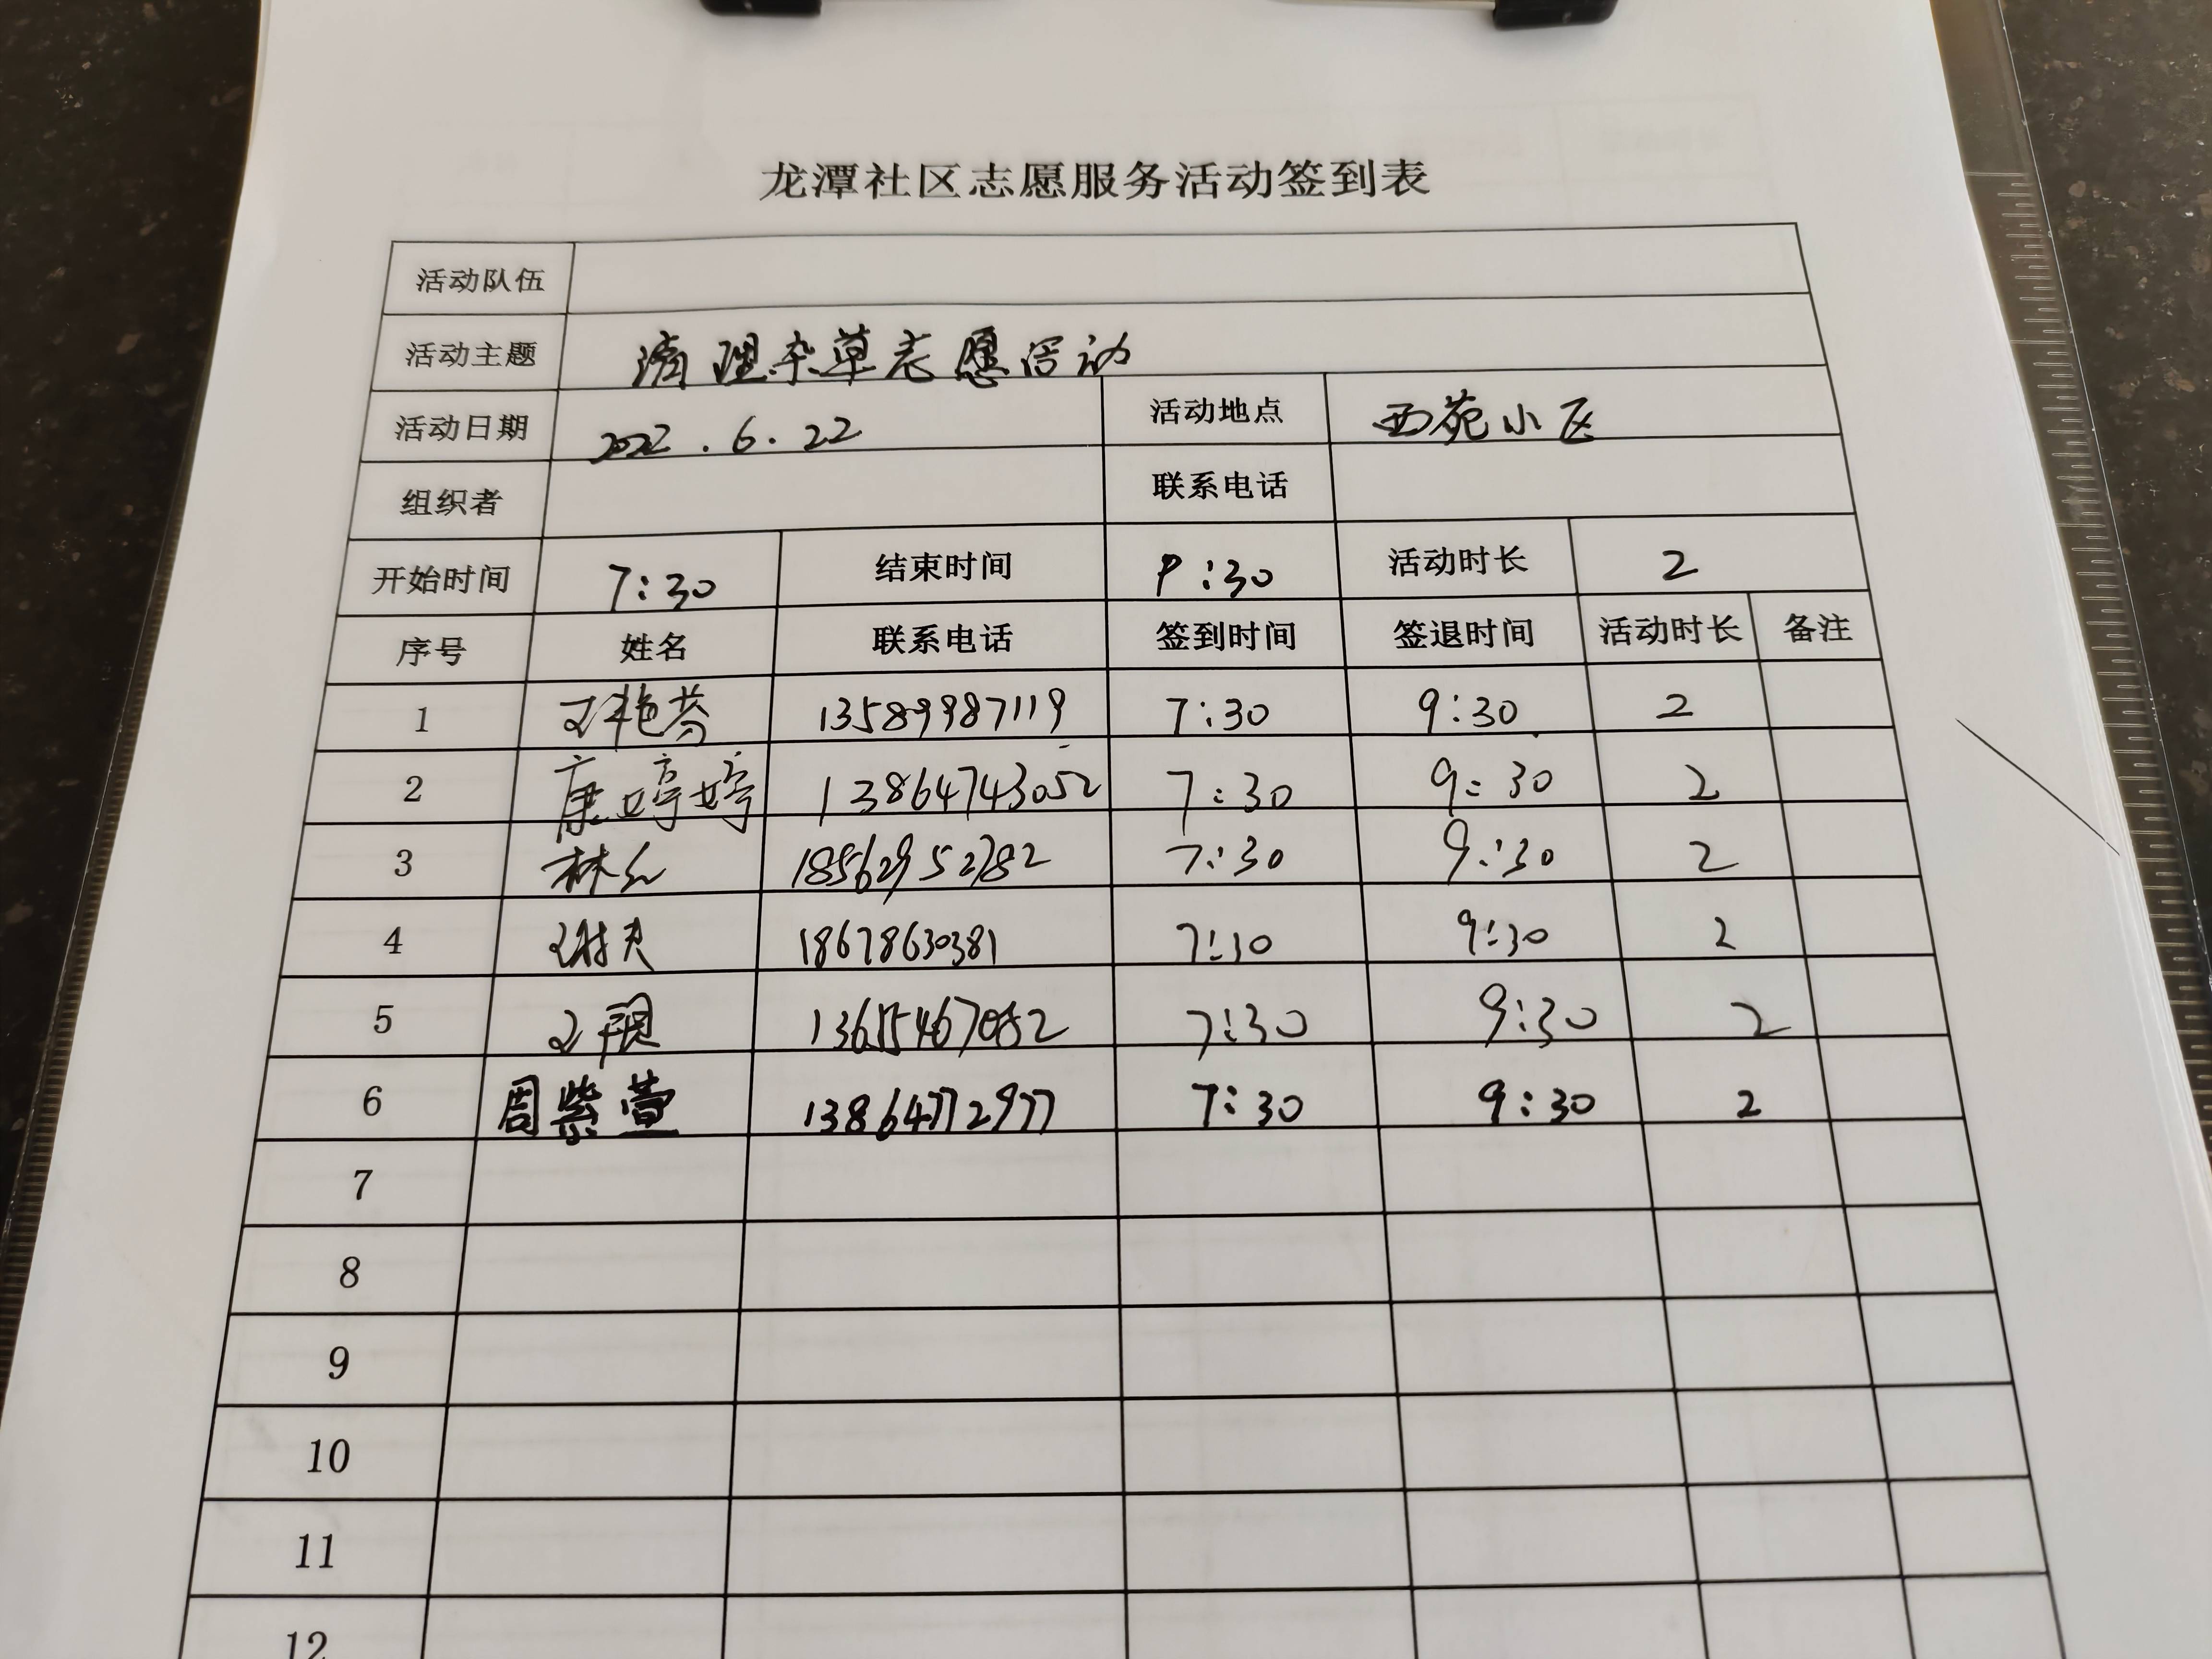 龙潭社区志愿服务活动签到表
活动队伍
活动主题 清理杂草志愿活动
活动日期 2022.6.22 活动地点 西苑小区
组织者 联系电话
开始时间 7:30 结束时间 9:30 活动时长 2
序号 姓名 联系电话 签到时间 签退时间 活动时长 备注
1 王艳芬 13589987119 7:30 9:30 2
2 康婷婷 13864743052 7:30 9:30 2
3 林红 18562952782 7:30 9:30 2
4 18678630381 7:30 9:30 2
5 7:30 9:30 2
6 周紫萱 13864772977 7:30 9:30 2
7
8
9
10
11
12